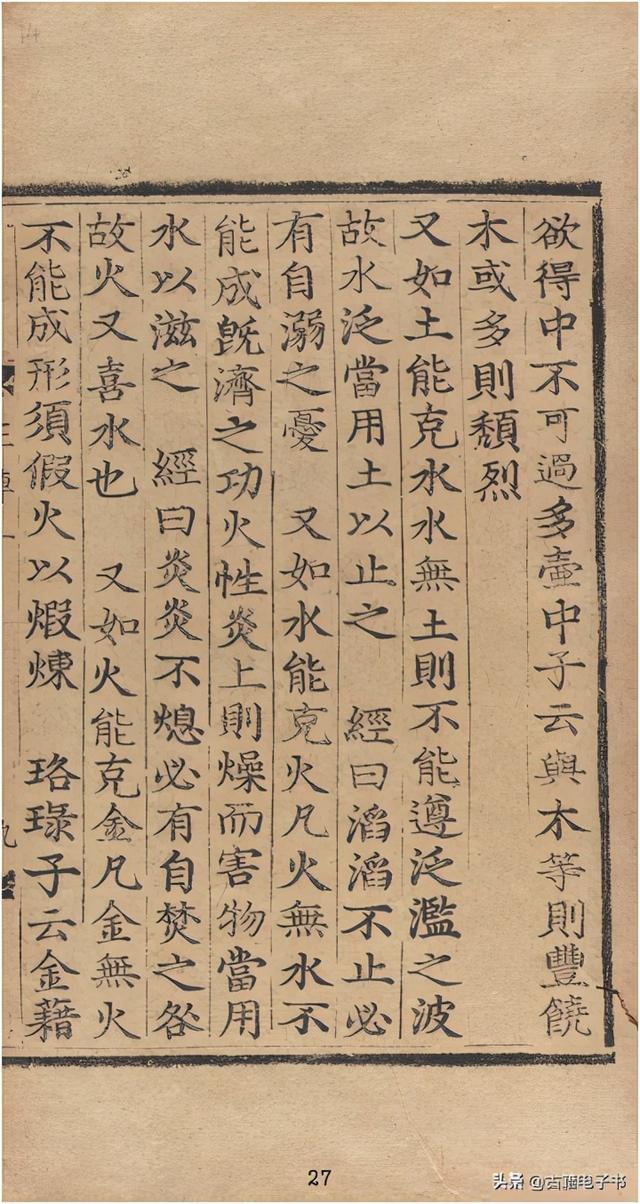 欲得中不可過多壷中子云與木等則豐饒
木或多則頹烈
又如土能克水水無土則不能遵泛濫之波
故水泛當用土以止之　經曰滔滔不止必
有自溺之憂　又如水能克火凡火無水不
能成旣濟之功火性炎上則燥而害物當用
水以滋之　經曰炎炎不熄必有自焚之咎
故火又喜水也　又如火能克金凡金無火
不能成形須假火以煆煉　珞琭子云金藉
九
27
头条 @古籍电子书